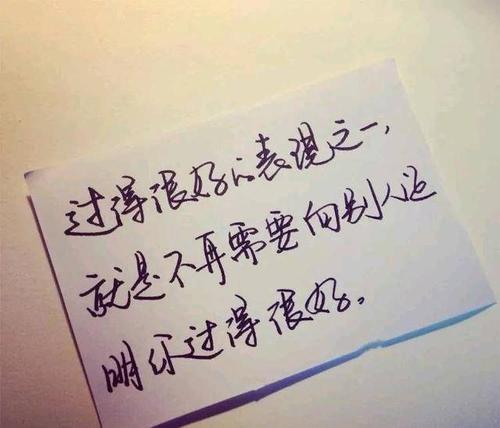 过得很好的表现之一，
就是不再需要向别人证
明你过得很好。